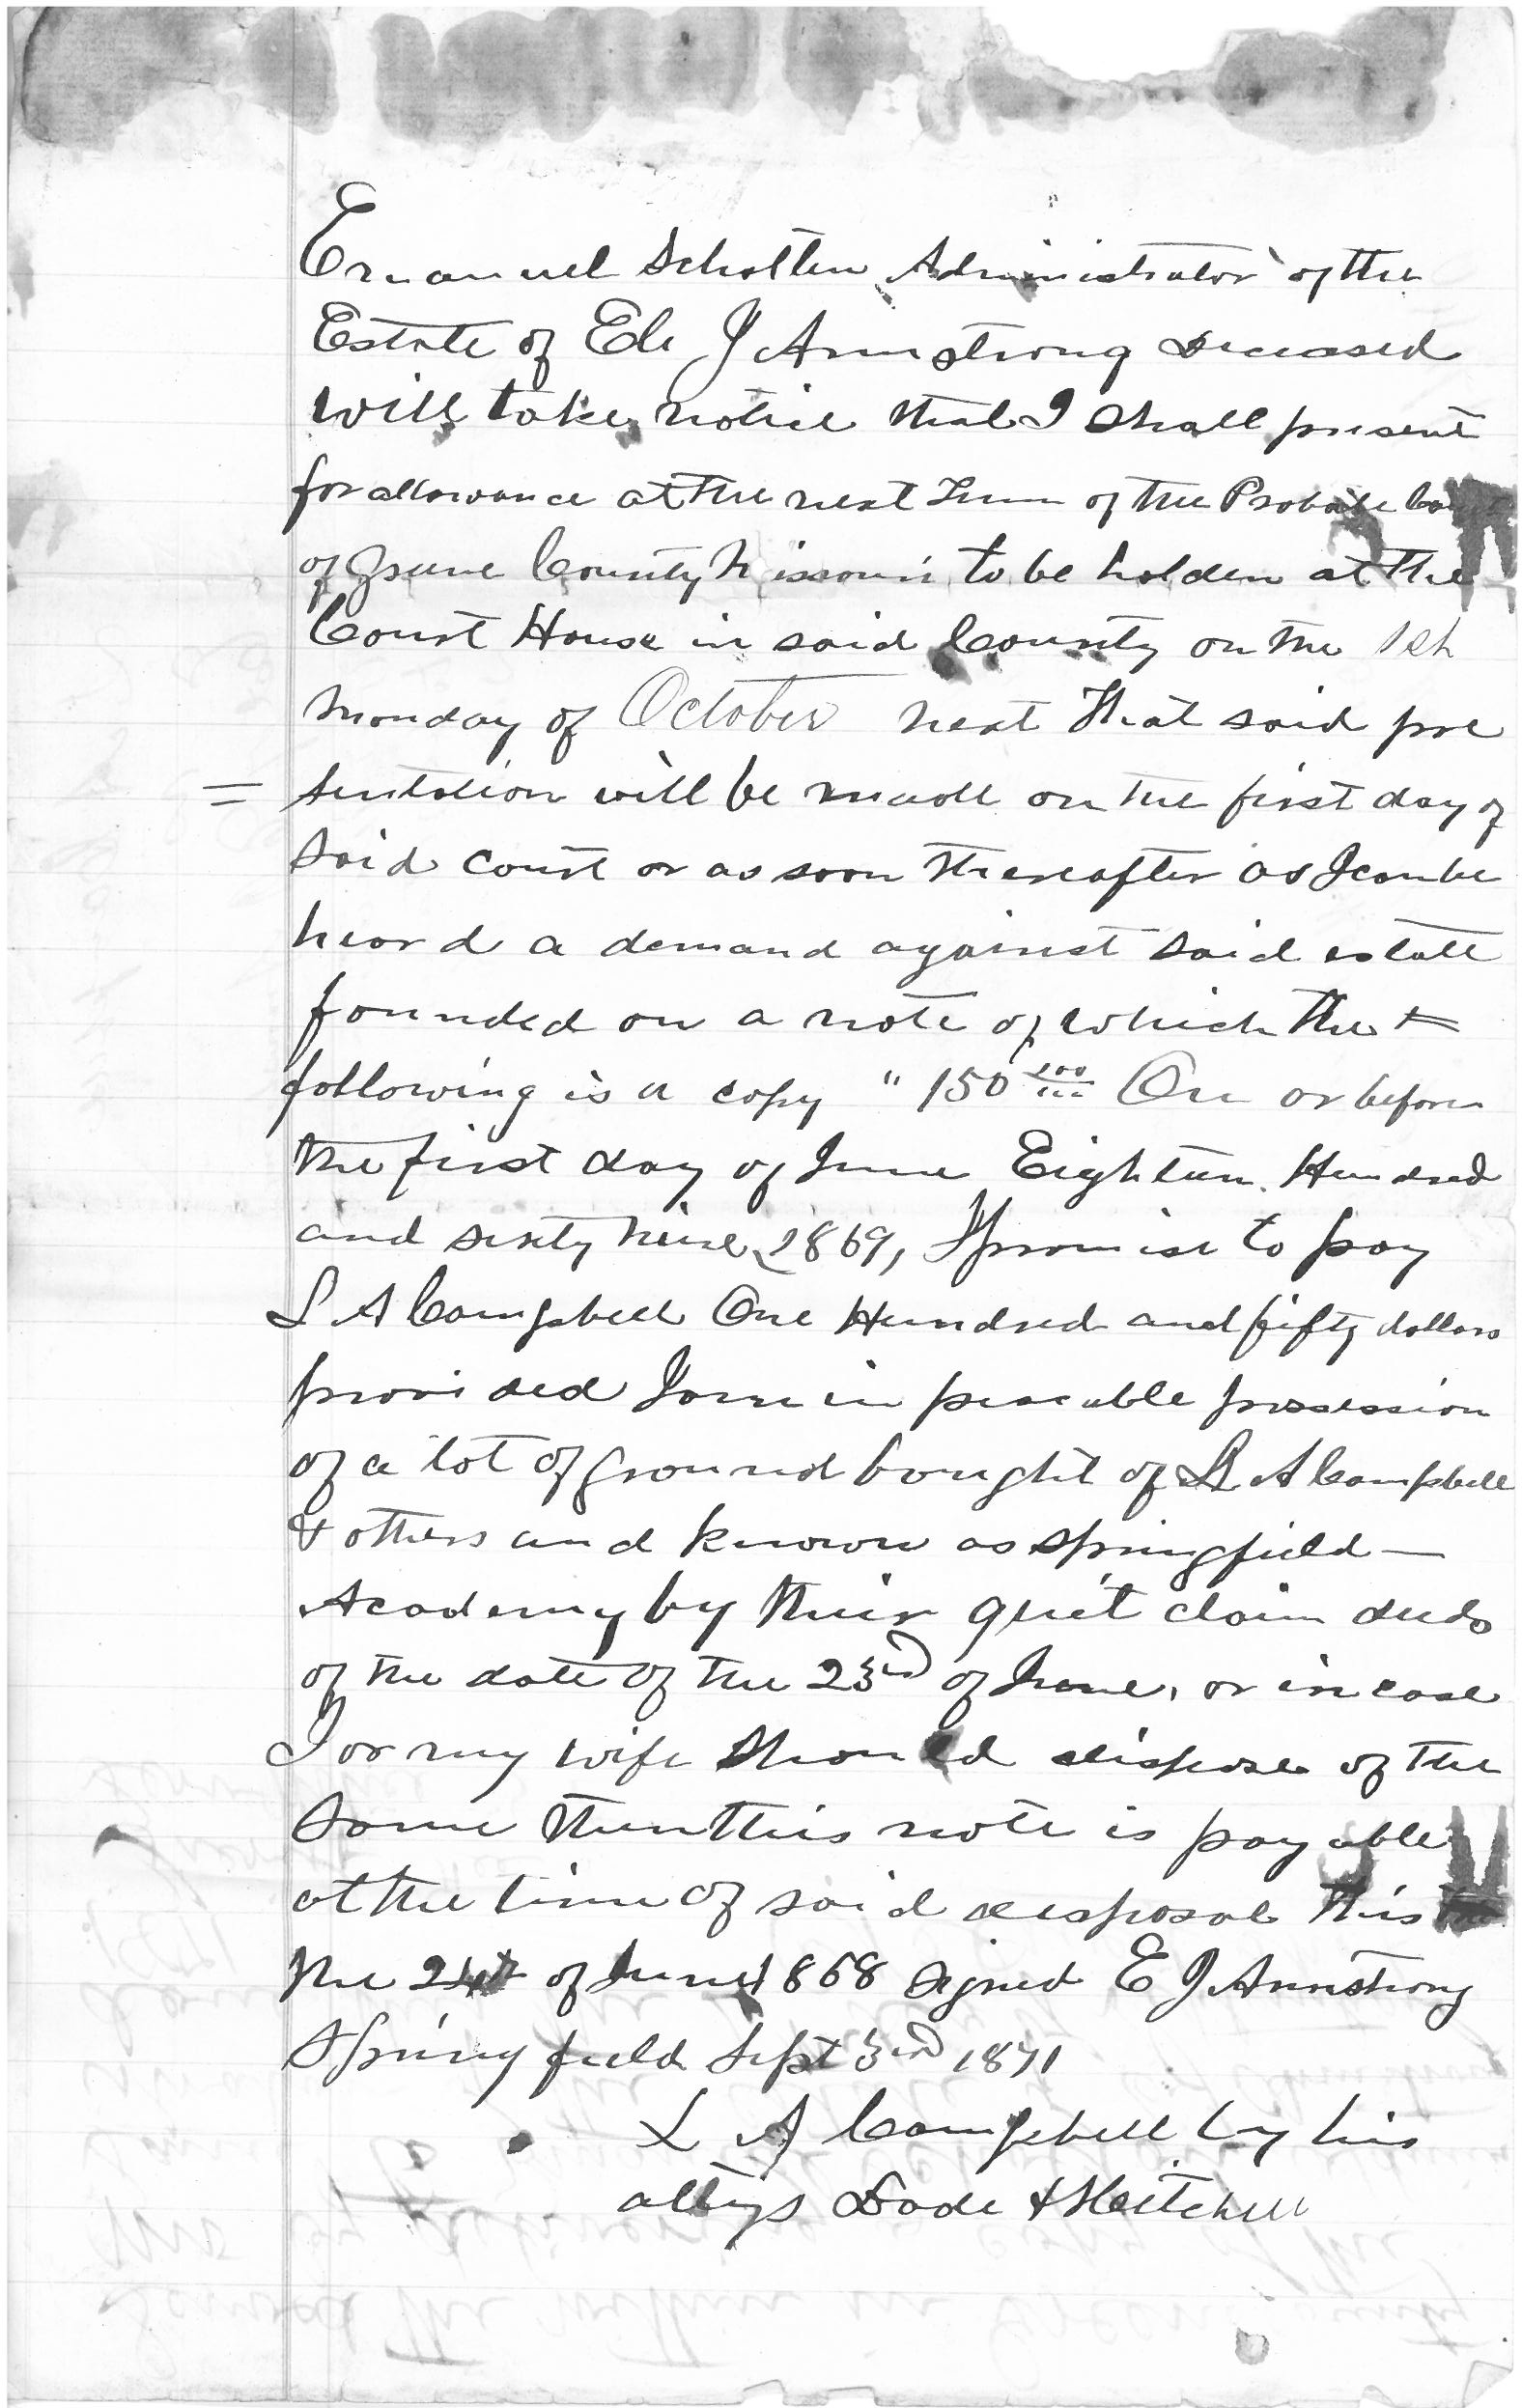 Emanuel Scholten Administrator of the
Estate of Ele J Armstrong deceased
will take notice that I shall present
for allowance at the next Term of the Probate Court
of Greene County Missouri to be holden at the
Court House in said County on the 1st
Monday of October next That said pre
= sentation will be made on the first day of
said court or as soon thereafter as I can be
heard a demand against said estate
founded on a note of which the
following is a copy " 150 On or before
the first day of June Eighteen Hundred
and sixty nine 1869, I promise to pay
L A Campbell One Hundred and fifty dollars
provided I am in peaceable possession
of a lot of ground bought of L A Campbell
& others and known as Springfield —
Academy by their quit claim deeds
of the date of the 23rd of June, or in case
I or my wife should dispose of the
same then this note is payable
at the time of said disposal this
the 24th of June 1868 signed E J Armstrong
Springfield Sept 3rd 1871
L A Campbell by his
attys Dade &